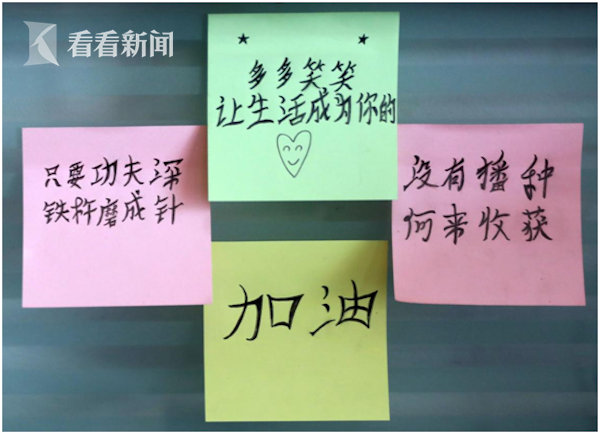 看看新闻
★ ★
多多笑笑
让生活成为你的
只要功夫深
铁杵磨成针
没有播种
何来收获
加油